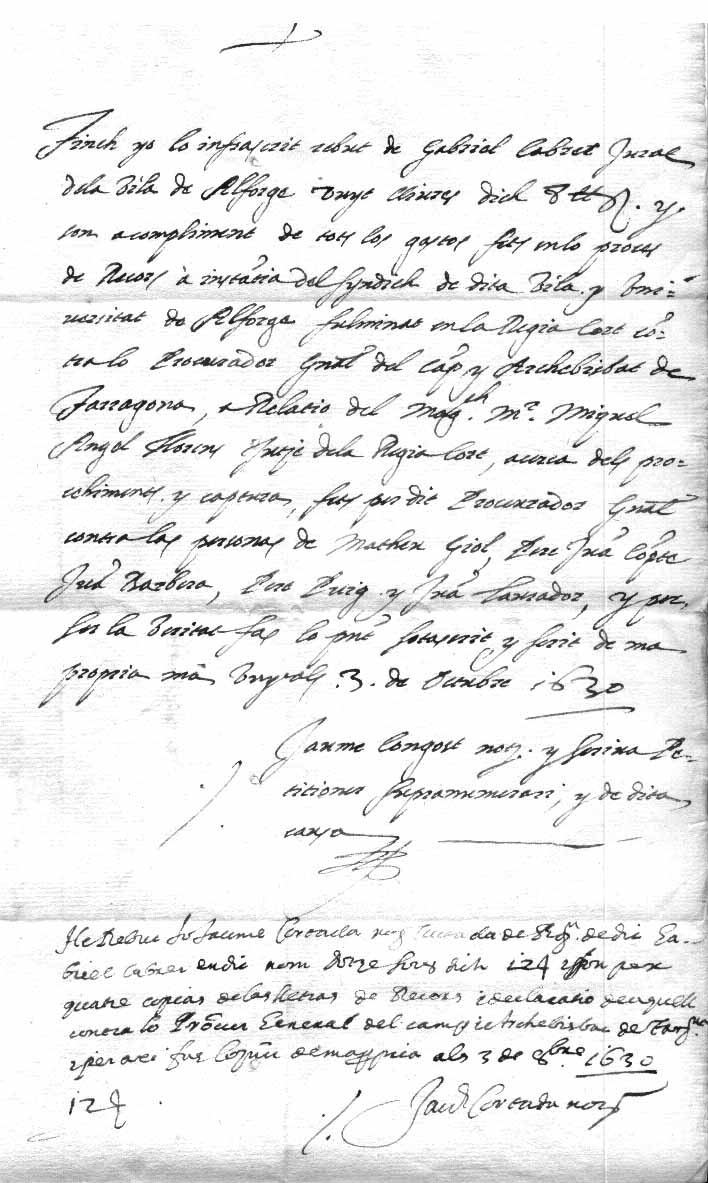 Tinch yo lo infrascrit rebut de Gabriel Cabrer Jurat
dela Vila de Alforge vuyt lliures dich 8 ll y
son a compliment de tots los gastos fets en lo proces
de Recors à instãtia del syndich de dita Vila y Uni=
versitat de Alforge fulminat en la Regia Cort cõ-
tra lo Procurador Gnãl del Cãp y Archebisbat de
Tarragona, a Relatio del Magch. Mº. Miquel
Angel Llorens Jutje dela Regia Cort, acerca dels pro=
cehiments y captura, fets per dit Procurador Gnãl
contra las personas de Matheu Giol, Pere Juã Cõpte
Juã Barbera, Pere Puig y Juã Laurador, y per
ser la Veritat fas lo pnt sotascrit y scrit de ma
propria mã vuy als 3 de Octubre 1630
Jaume Congost notj. y scriva Pe-
titioner supranumerari, y de dita
causa
He Rebut Jo Jaume Cortada notj de dit Ga-
briel Cabrer en dit nom dotze sous dich 12 s y son per
quatre copias de las lletras de Recors i declaratio de aquell
contra lo Procur General del camp i Archebisbat de Tarrgna
y per axi fas de ma ppria als 3 de 8bre 1630
12 s
Jaue Cortada notj